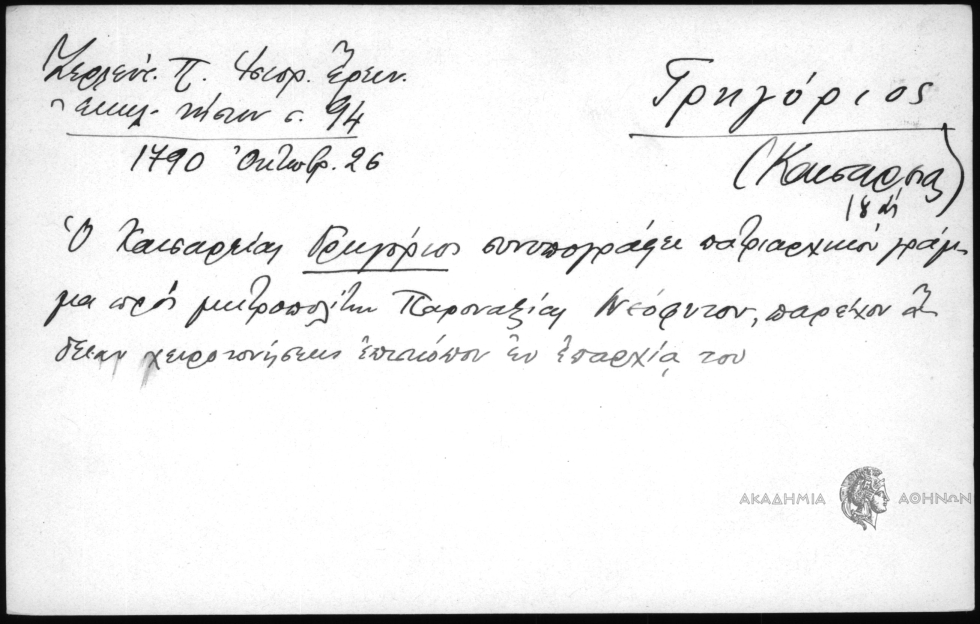 Ζερλέντ. Π. Ἱστορ. Ἔρευν.
ἐκκλ. νήσων σ. 94
1790 Ὀκτωβρ. 26
Γρηγόριος
(Καισαρείας)
18 αἰ
Ὁ Καισαρείας Γρηγόριος συνυπογράφει πατριαρχικὸν γράμ-
μα πρὸς μητροπολίτην Παροναξίας Νεόφυτον, παρέχον ἄ-
δειαν χειροτονήσεως ἐπισκόπου ἐν ἐπαρχίᾳ του
ΑΚΑΔΗΜΙΑ ΑΘΗΝΩΝ